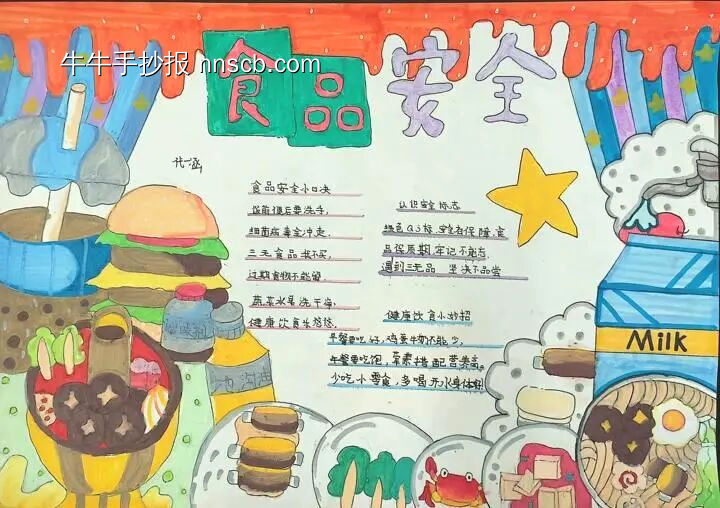 牛牛手抄报 nnscb.com
食品安全
食品安全小口决
饭前便后要洗手,
细菌病毒全冲走.
三无食品我不买,
过期食物不能留.
蔬菜水果洗干净,
健康饮食乐悠悠.
认识安全标志
绿色QS标,安全有保障,食
品保质期,牢记不能忘,
遇到三无品 坚决不品尝
健康饮食小妙招
早餐要吃好,鸡蛋牛奶不能少,
午餐要吃饱,荤素搭配营养高。
少吃小零食,多喝开水身体好
Milk